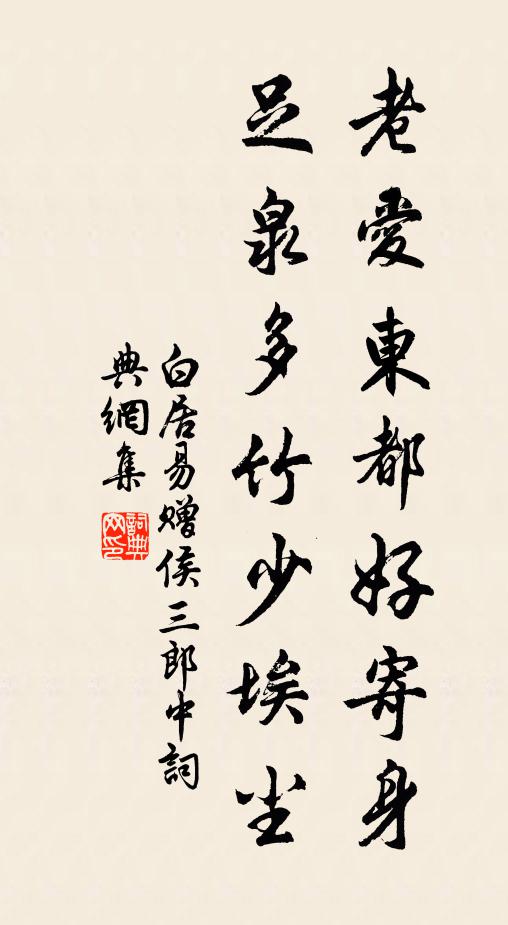 老愛東都好寄身
足泉多竹少埃尘
白居易赠侯三郎中詞
典網集
詞典网印